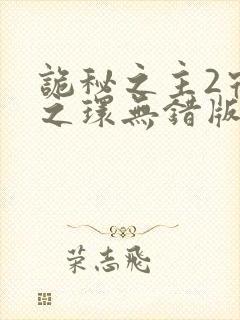 詭秘之主2宿
之環無錯版
榮志飛